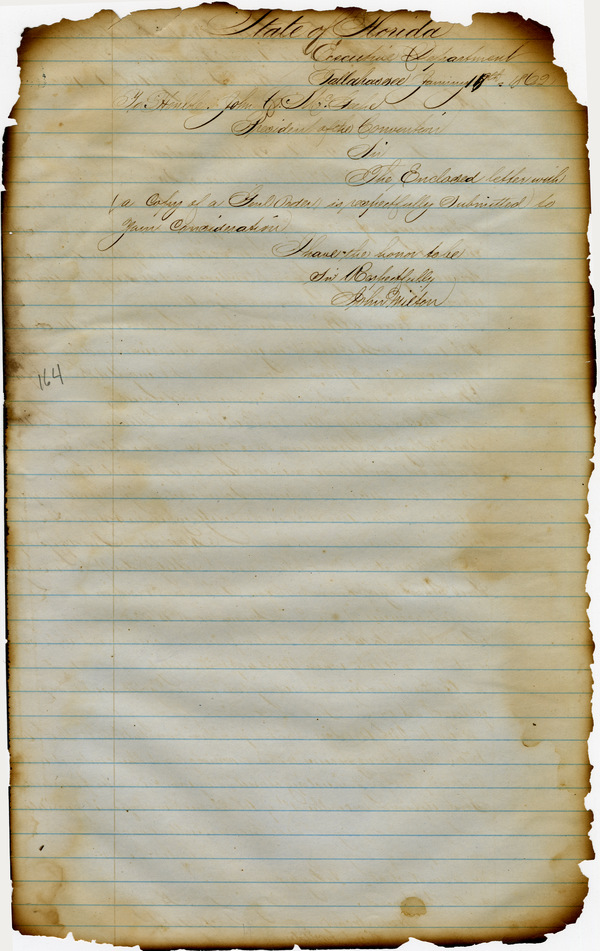 State of Florida
Executive Department
Tallahassee January 18th 1862
To Honble. John C. McGehee
President of the Convention
Sir
The Enclosed letter with
(a Copy of a Genl Order) is respectfully Submitted to
your Consideration
I have the honor to be
Sir Respectfully
John Milton
164